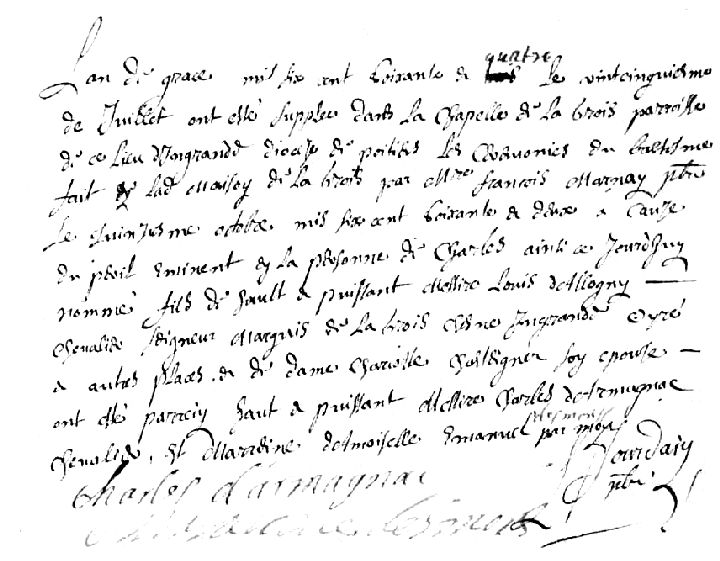 quatre
Lan de grace mil six cent soixante & le vintcinquiesme
de Juillet ont esté supplee dans la Chapelle de la brois parroisse
de ce lieu Dingrande diocese de poitiers les Ceremonies du batesme
fait en lad maison de la brois par Mre francois Marnay pbre
le quinziesme octobre mil six cent soixante & deux a cause
du peril eminent en la personne de Charles ainsi ce Jourdhuy
nommé fils de hault & puissant Messire Louis dAlogny
Chevalier seigneur Marquis de la brois Chesne Ingrande Oyré
& autres places & de dame Charlotte Chasteigner son epouse
ont esté parrein haut & puissant Messire Charles darmagnac
Chevalier, et Marraine damoiselle Emanuel par moy
Jourdain
pbre
Charles d'armagnac